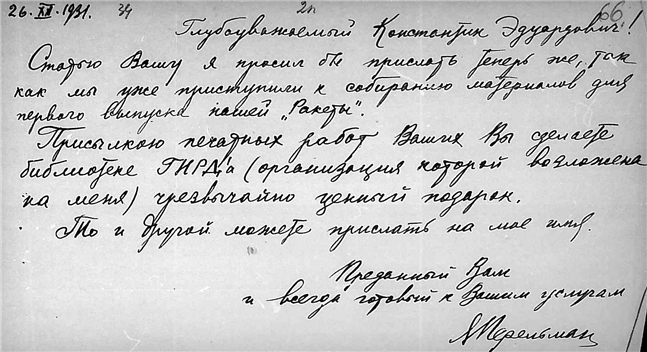 26. XII. 1931. 34 2л 66
Глубоуважаемый Константин Эдуардович!
Статью Вашу я просил бы прислать теперь же, так
как мы уже приступили к собиранию материалов для
первого выпуска нашей „Ракеты".
Присылкою печатных работ Ваших Вы сделаете
библиотеке ГИРД'а (организация которой возложена
на меня) чрезвычайно ценный подарок.
То и другой можете прислать на мое имя.
Преданный Вам
и всегда готовый к Вашим услугам
ЯПерельман